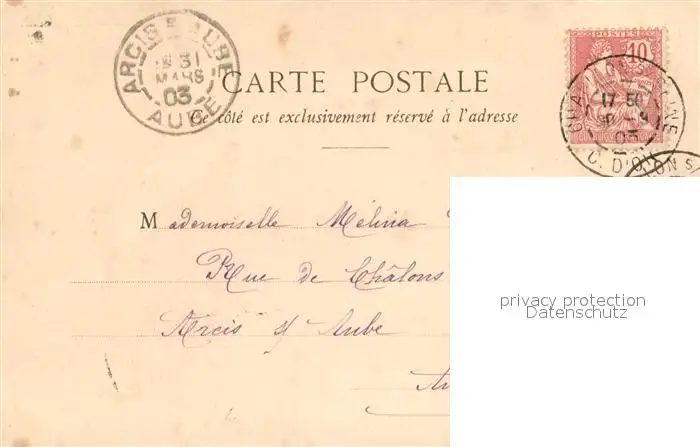 ARCIS S AUBE
31
MARS
03
AUBE
POSTES
10
CARTE POSTALE
Ce côté est exclusivement réservé à l'adresse
17 50
03
C. D'OR
ON S/
Mademoiselle Mélina
Rue de Châlons
Arcis s/ Aube
privacy protection
Datenschutz